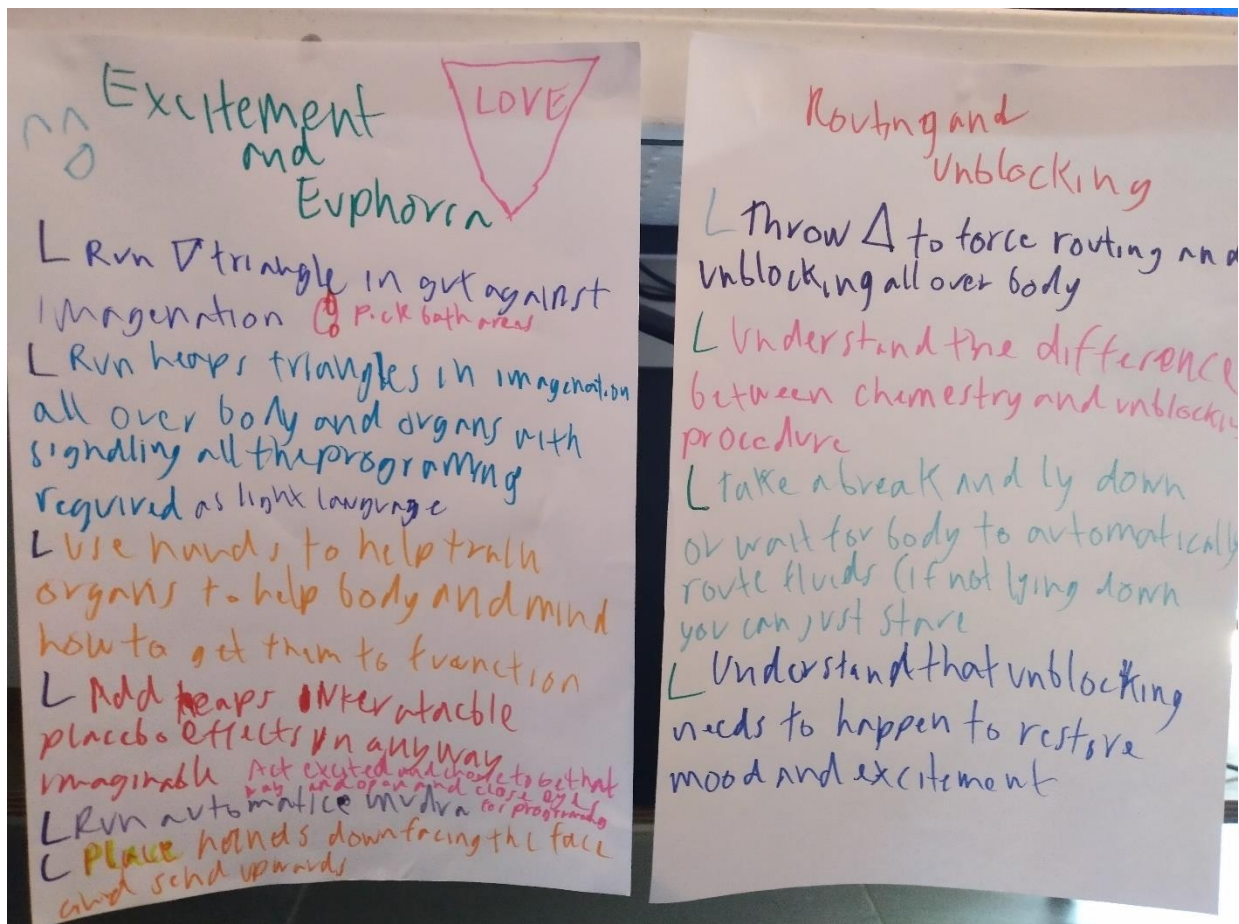 Excitement
and
Euphoria
LOVE
L Run ▽ triangle in gut against
imagenation pick both areas
L Run heaps triangles in imagenation
all over body and organs with
signalling all the programing
required as light language
L use hands to help train
organs to help body and mind
how to get them to function
L Add heaps
placebo effects in anyway
imaginable Act excited and chose to be that
way and open and close eyes
L Run automatice mudra for programing
L Place hands down facing the face
and send upwards
Routing and
Unblocking
L Throw △ to force routing and
unblocking all over body
L Understand the difference
between chemestry and unblocking
procedure
L take a break and ly down
or wait for body to automatically
route fluids (if not lying down
you can just stare
L Understand that unblocking
needs to happen to restore
mood and excitement